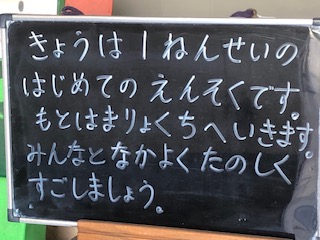 きょうは1ねんせいの
はじめてのえんそくです。
もとはまりょくちへいきます。
みんなとなかよくたのしく
すごしましょう。